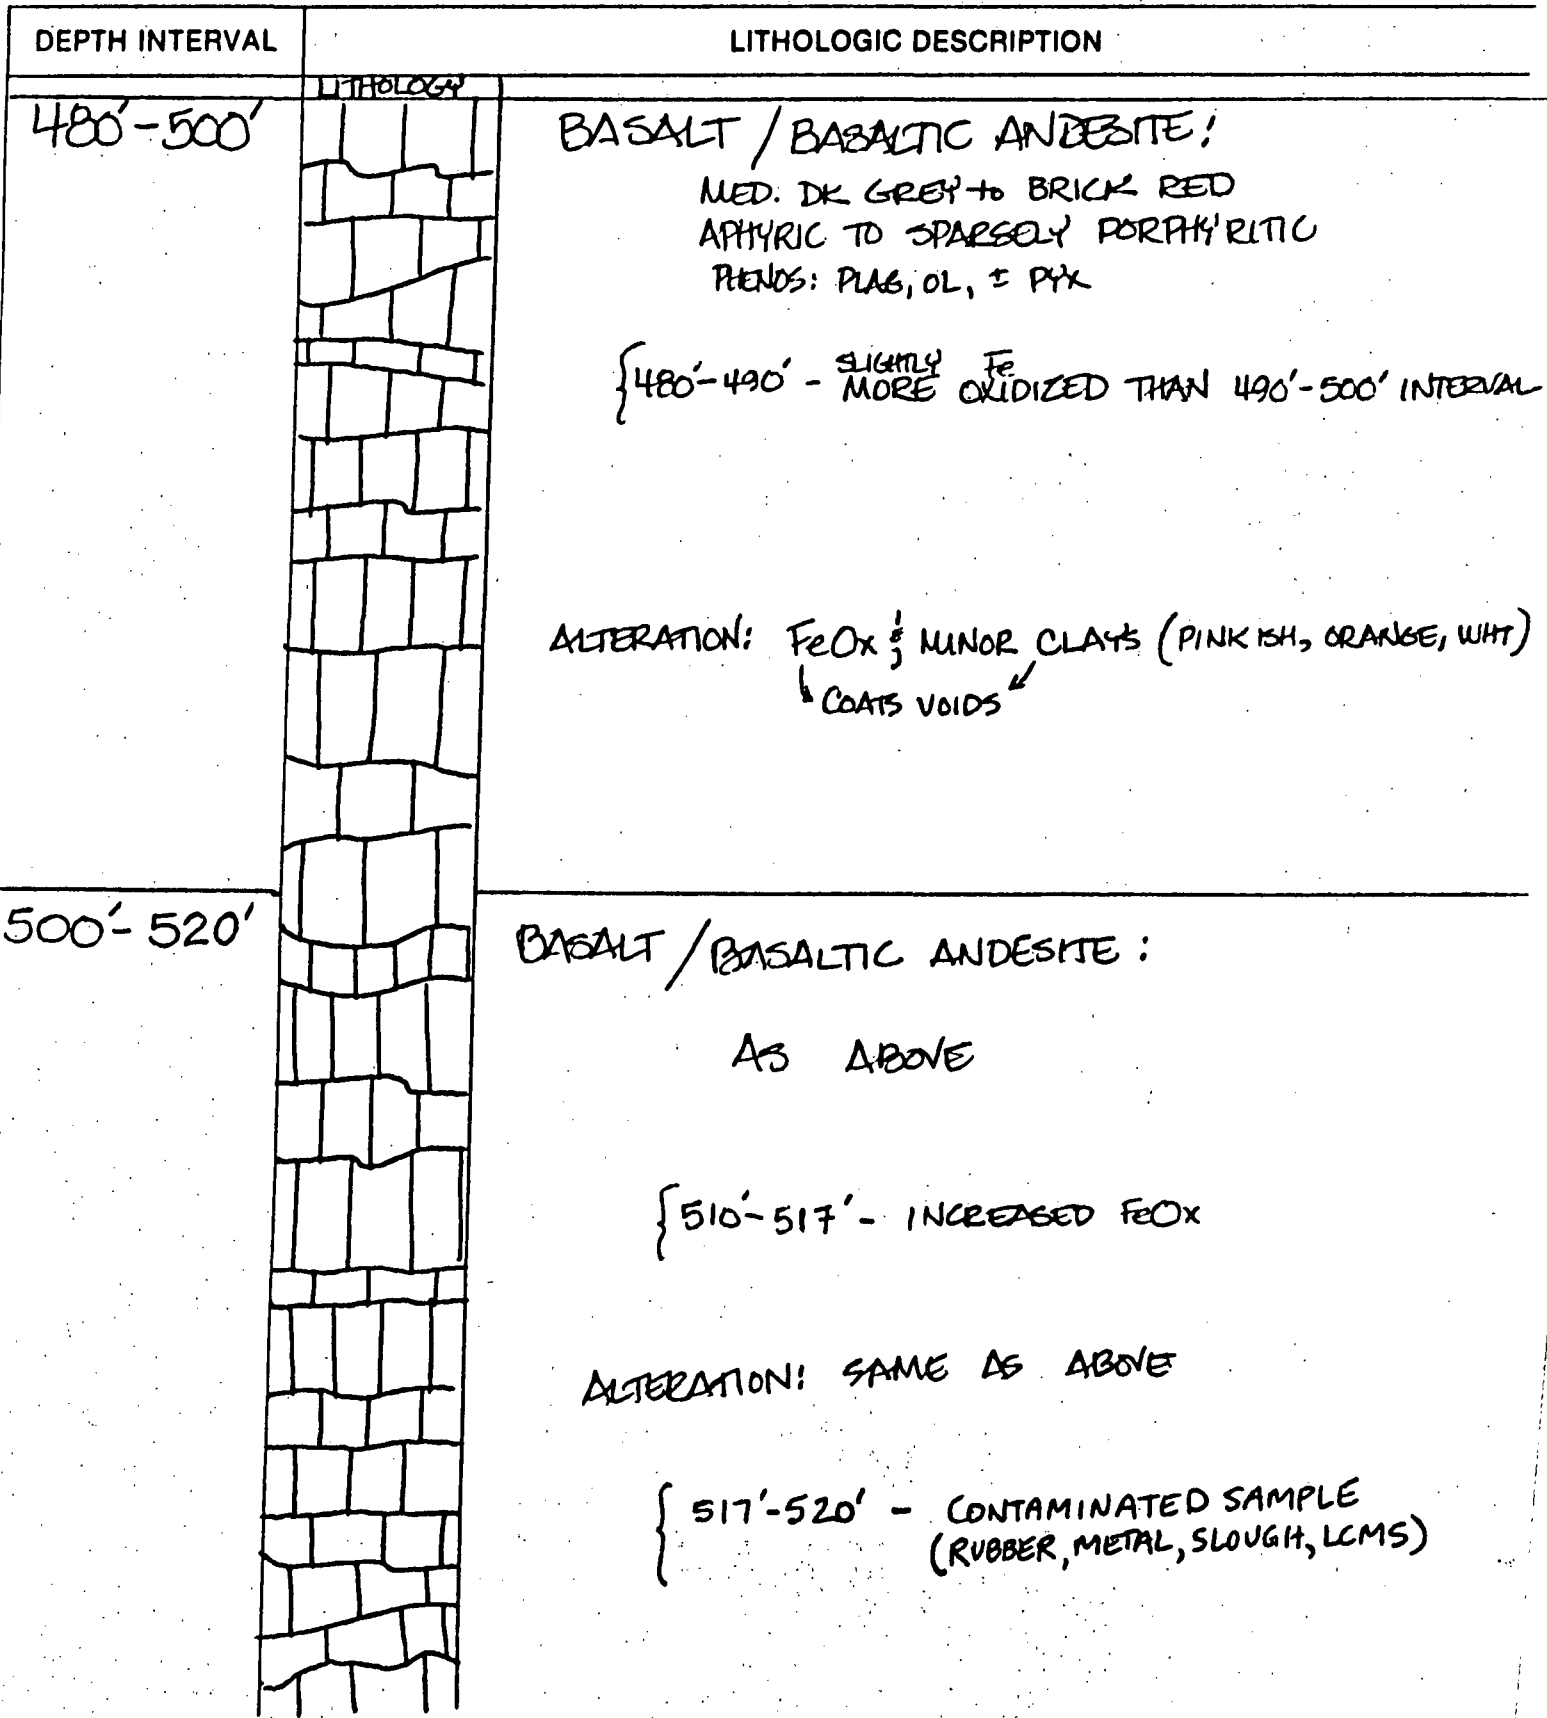 DEPTH INTERVAL
LITHOLOGIC DESCRIPTION
LITHOLOGY
480'-500'
BASALT / BASALTIC ANDESITE:
MED. DK GREY to BRICK RED
APHYRIC TO SPARSELY PORPHYRITIC
PHENOS: PLAG, OL, ± PYX
{480'-490' - SLIGHTLY MORE Fe OXIDIZED THAN 490'-500' INTERVAL
ALTERATION: FeOx & MINOR CLAYS (PINKISH, ORANGE, WHT)
COATS VOIDS
500'-520'
BASALT / BASALTIC ANDESITE:
AS ABOVE
{510'-517' - INCREASED FeOx
ALTERATION: SAME AS ABOVE
{517'-520' - CONTAMINATED SAMPLE
(RUBBER, METAL, SLOUGH, LCMS)